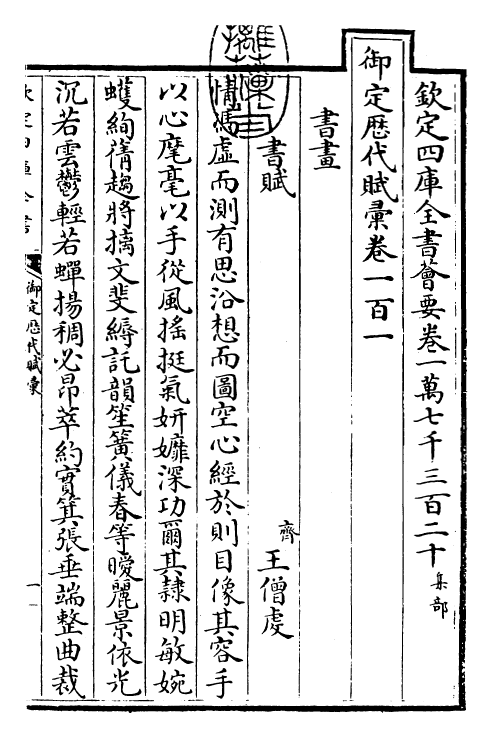 欽定四庫全書薈要卷一萬七千三百二十 集部
御定歷代賦彙卷一百一
書畫
書賦 齊 王僧虔
情憑虛而測有思沿想而圖空心經於則目像其容手
以心麾毫以手從風搖挺氣妍嬪深功爾其隸明敏婉
蠖絢蒨趨將摛文斐縟託韻笙簧儀春等曖麗景依光
沉若雲鬱輕若蟬揚稠必昂萃約實箕張垂端整曲裁
御定歷代賦彙
一